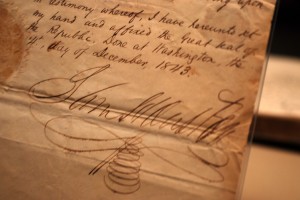 upon
testimony whereof, I have hereunto set
my hand and affixed the Great Seal of
the Republic. Done at Washington the
day of December, 1843.
Sam Houston